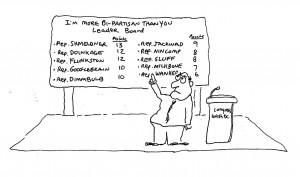 I'm More Bi-Partisan Than You
Leader Board
Points
• Rep. Shmeldner 13
• Rep. Doinkage 12
• Rep. Flunkston 12
• Rep. Goosebrain 10
• Rep. Dumbbund 10
Points
• Rep. Jackwad 9
• Rep. Nincomp 8
• Rep. Sluff 8
• Rep. Milkbone 7
• Rep. Wanker 6